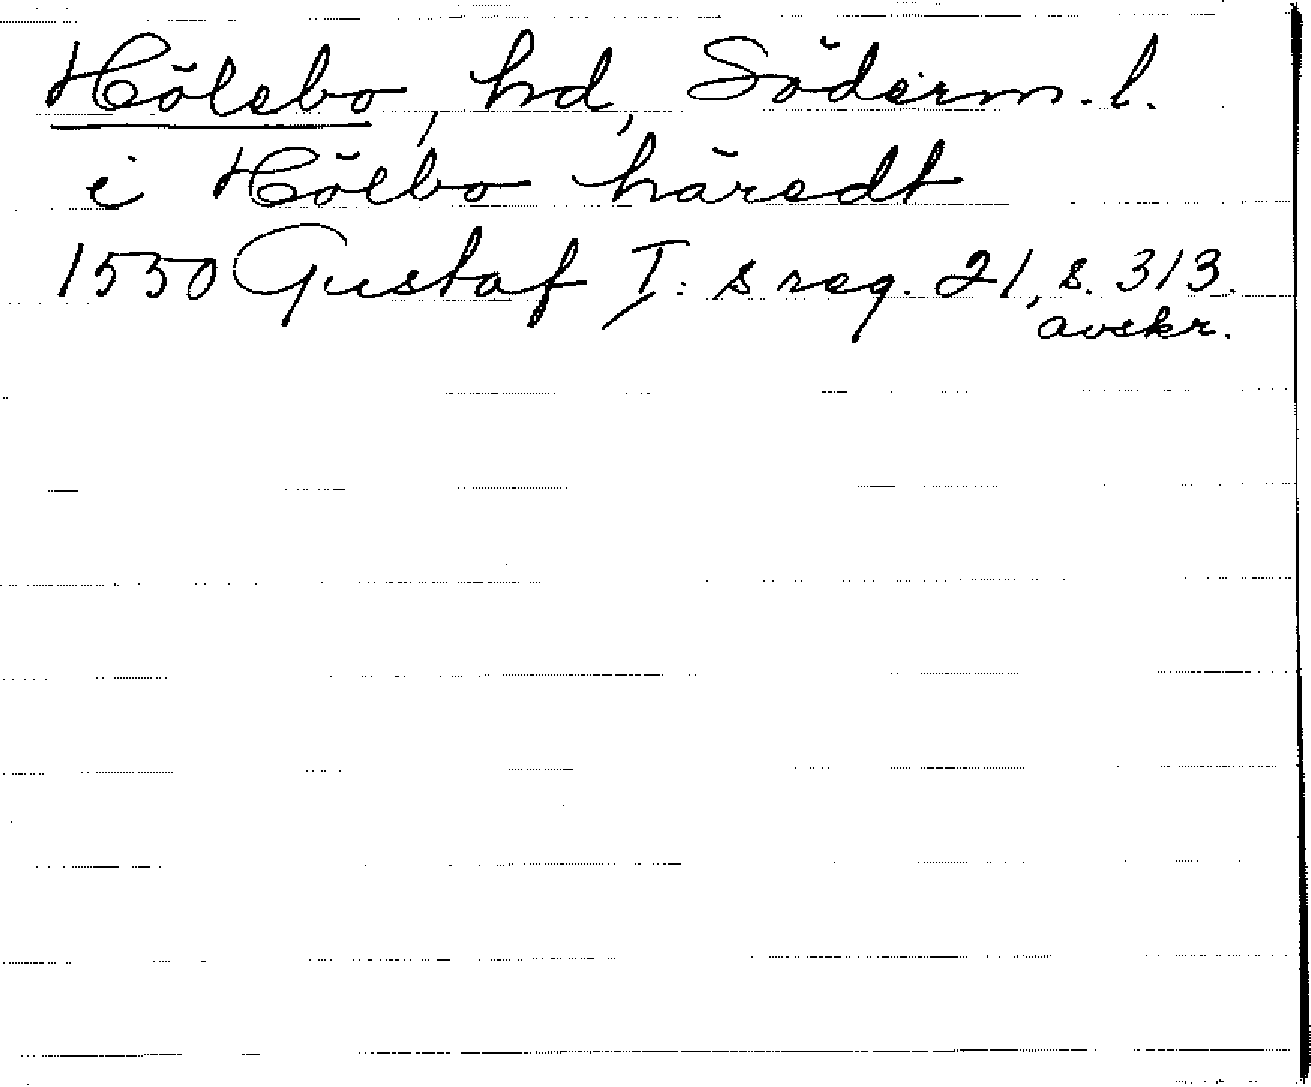 Hölebo, hd, Söderm. l.
i Hölbo häredt
1550 Gustaf I:s reg. 21, s. 313.
avskr.